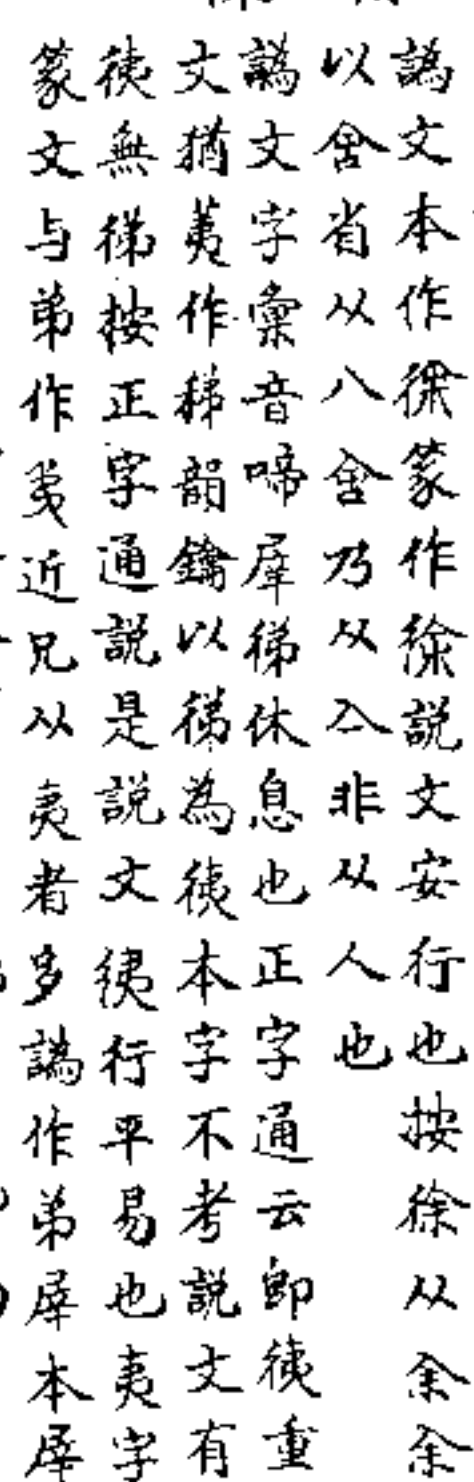 譌文本作徐篆作徐説文安行也按徐从余余
以舍省从八舍乃从亼非从人也
譌文字彙音啼犀徲休息也正字通云即徥重
文猶荑作稊韻鑰以徲為徥本字不考説文有
徥無徲按正字通説是説文徥行平易也夷字
篆文与弟作夷近兄从夷者多譌作弟犀本犀